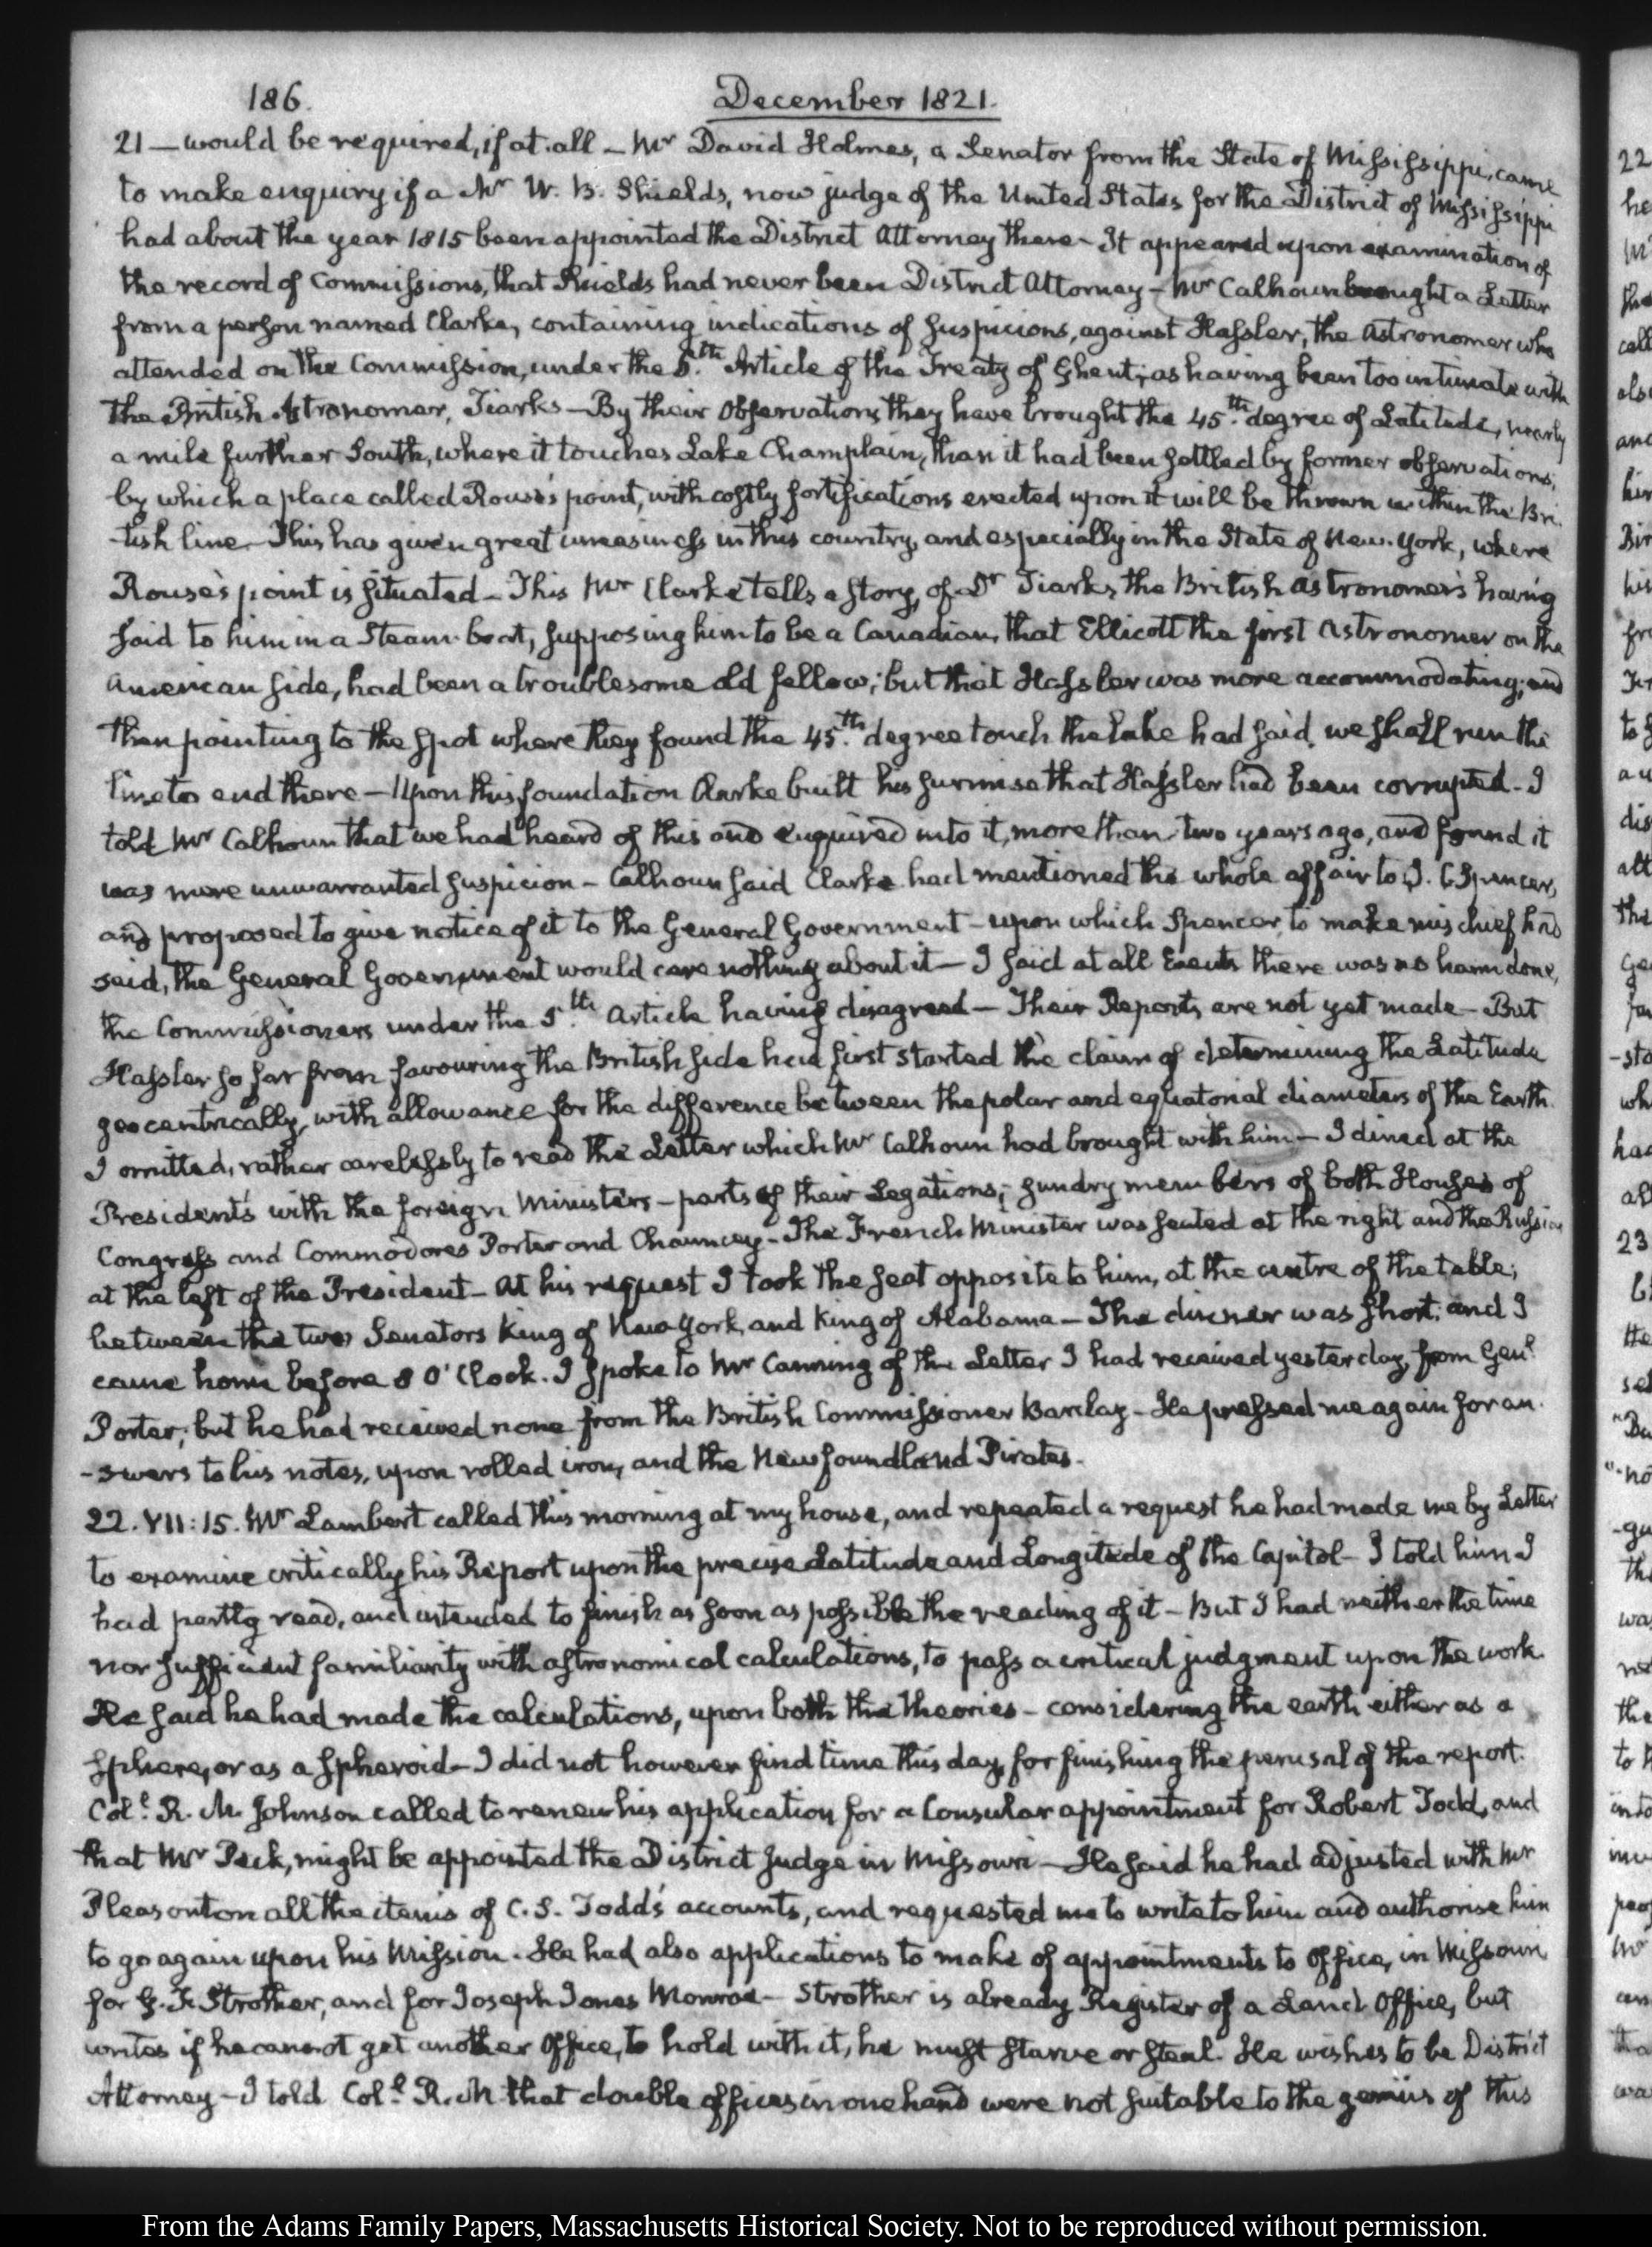 186.
December 1821.
21 — would be required, if at all – Mr David Holmes, a Senator from the State of Mississippi, came
to make enquiry if a Mr W. B. Shields, now judge of the United States for the District of Mississippi
had about the year 1815 been appointed the District Attorney there – It appeared upon examination of
the record of Commissions, that Shields had never been District Attorney – Mr Calhoun brought a Letter
from a person named Clarke, containing indications of suspicions, against Hassler, the Astronomer who
attended on the Commission, under the 5.th Article of the Treaty of Ghent; as having been too intimate with
the British Astronomer, Tiarks – By their Observations they have brought the 45.th degree of Latitude, nearly
a mile further South, where it touches Lake Champlain, than it had been settled by former observations;
by which a place called Rouse's point, with costly fortifications erected upon it will be thrown within the Bri-
-tish line – This has given great uneasiness in this country, and especially in the State of New-York, where
Rouse's point is situated – This Mr Clarke tells a story, of Dr Tiarks the British astronomer's having
said to him in a Steam-boat, supposing him to be a Canadian, that Ellicott the first Astronomer on the
American side, had been a troublesome old fellow; but that Hassler was more accommodating; and
then pointing to the spot where they found the 45.th degree touch the lake had said, we shall run the
line to end there – Upon this foundation Clarke built his surmise that Hassler had been corrupted – I
told Mr Calhoun that we had heard of this and enquired into it, more than two years ago, and found it
was mere unwarranted suspicion – Calhoun said Clarke had mentioned the whole affair to J. C. Spencer,
and proposed to give notice of it to the General Government – upon which Spencer, to make mischief had
said, the General Government would care nothing about it – I said at all Events there was no harm done,
the Commissioners under the 5.th Article having disagreed – Their Reports are not yet made – But
Hassler so far from favouring the British side had first started the claim of determining the Latitude
geocentrically, with allowance for the difference between the polar and equatorial diameters of the Earth.
I omitted, rather carelessly to read the Letter which Mr Calhoun had brought with him – I dined at the
President's with the foreign Ministers – parts of their Legations; sundry members of both Houses of
Congress and Commodores Porter and Chauncey – The French Minister was seated at the right and the Russian
at the left of the President – At his request I took the seat opposite to him, at the centre of the table;
between the two Senators King of New York, and King of Alabama – The dinner was short; and I
came home before 8 O'Clock. I spoke to Mr Canning of the Letter I had received yesterday, from Genl.
Porter; but he had received none from the British Commissioner Barclay – He pressed me again for an-
-swers to his notes, upon rolled iron, and the Newfoundland Pirates.
22. VII:15. Mr Lambert called this morning at my house, and repeated a request he had made me by Letter
to examine critically his Report upon the precise Latitude and Longitude of the Capitol – I told him I
had partly read, and intended to finish as soon as possible the reading of it – But I had neither the time
nor sufficient familiarity with astronomical calculations, to pass a critical judgment upon the work.
He said he had made the calculations, upon both the theories – considering the earth either as a
sphere, or as a spheroid – I did not however find time this day, for finishing the perusal of the report.
Col.l R. M. Johnson called to renew his application for a Consular appointment for Robert Todd, and
that Mr Peck, might be appointed the District Judge in Missouri – He said he had adjusted with Mr
Pleasonton all the items of C. S. Todd's accounts, and requested me to write to him and authorise him
to go again upon his Mission. He had also applications to make of appointments to Office, in Missouri
for G. F. Strother, and for Joseph Jones Monroe – Strother is already Register of a Land Office, but
writes if he cannot get another Office, to hold with it, he must starve or steal. He wishes to be District
Attorney – I told Col.l R. M that double offices in one hand were not suitable to the genius of this
22
he
23
From the Adams Family Papers, Massachusetts Historical Society. Not to be reproduced without permission.